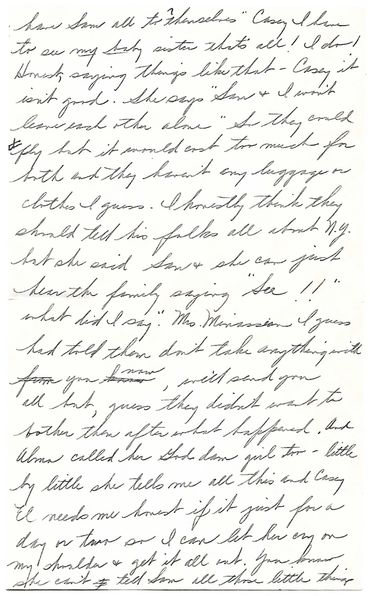 have Sam all to "themselves" Casey I have
to see my baby sister that's all! I do!
Honest, saying things like that - Casey it
isn't good. She says "Sam & I won't
leave each other alone" So they could
fly but it would cost too much for
both and they haven't any luggage or
clothes I guess. I honestly think they
should tell his folks all about N.Y.
but she said Sam & she can just
hear the family saying "See !!"
what did I say". Mrs. Minassian I guess
had told them don't take anything with
from you know now, we'll send you
all but, guess they didn't want to
bother them after what happened. And
Alma called her God dam girl too - little
by little she tells me all this and Casey
El needs me honest if it just for a
day or two so I can let her cry on
my shoulder & get it all out. You know
she can't tell Sam all those little things